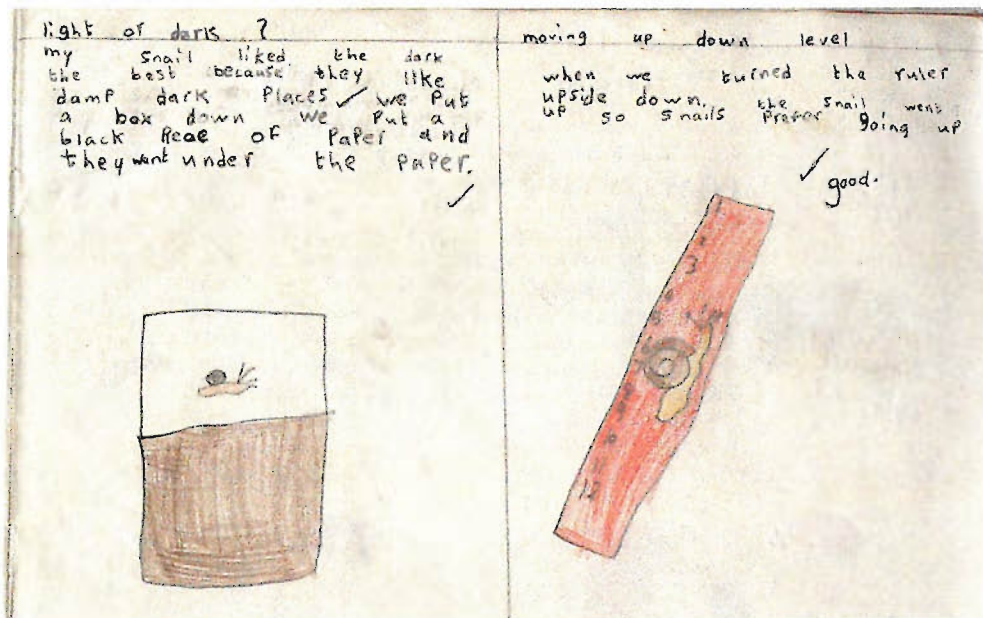 light or dark ?
my snail liked the dark
the best because they like
damp dark Places we Put
a box down we Put a
black Peae of PaPer and
they went under the PaPer.
moving up down level
when we turned the ruler
upside down. the snail went
up so snails Prafer going up
good.
3
12